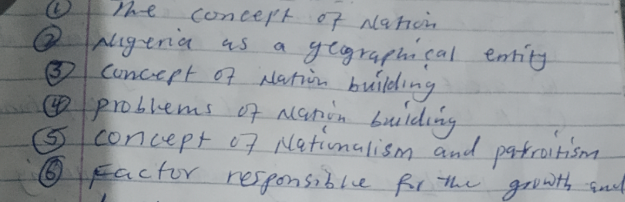 ① The concept of Nation
② Nigeria as a geographical entity
③ concept of Nation building
④ problems of Nation building
⑤ concept of Nationalism and patroitism
⑥ Factor responsible for the growth and